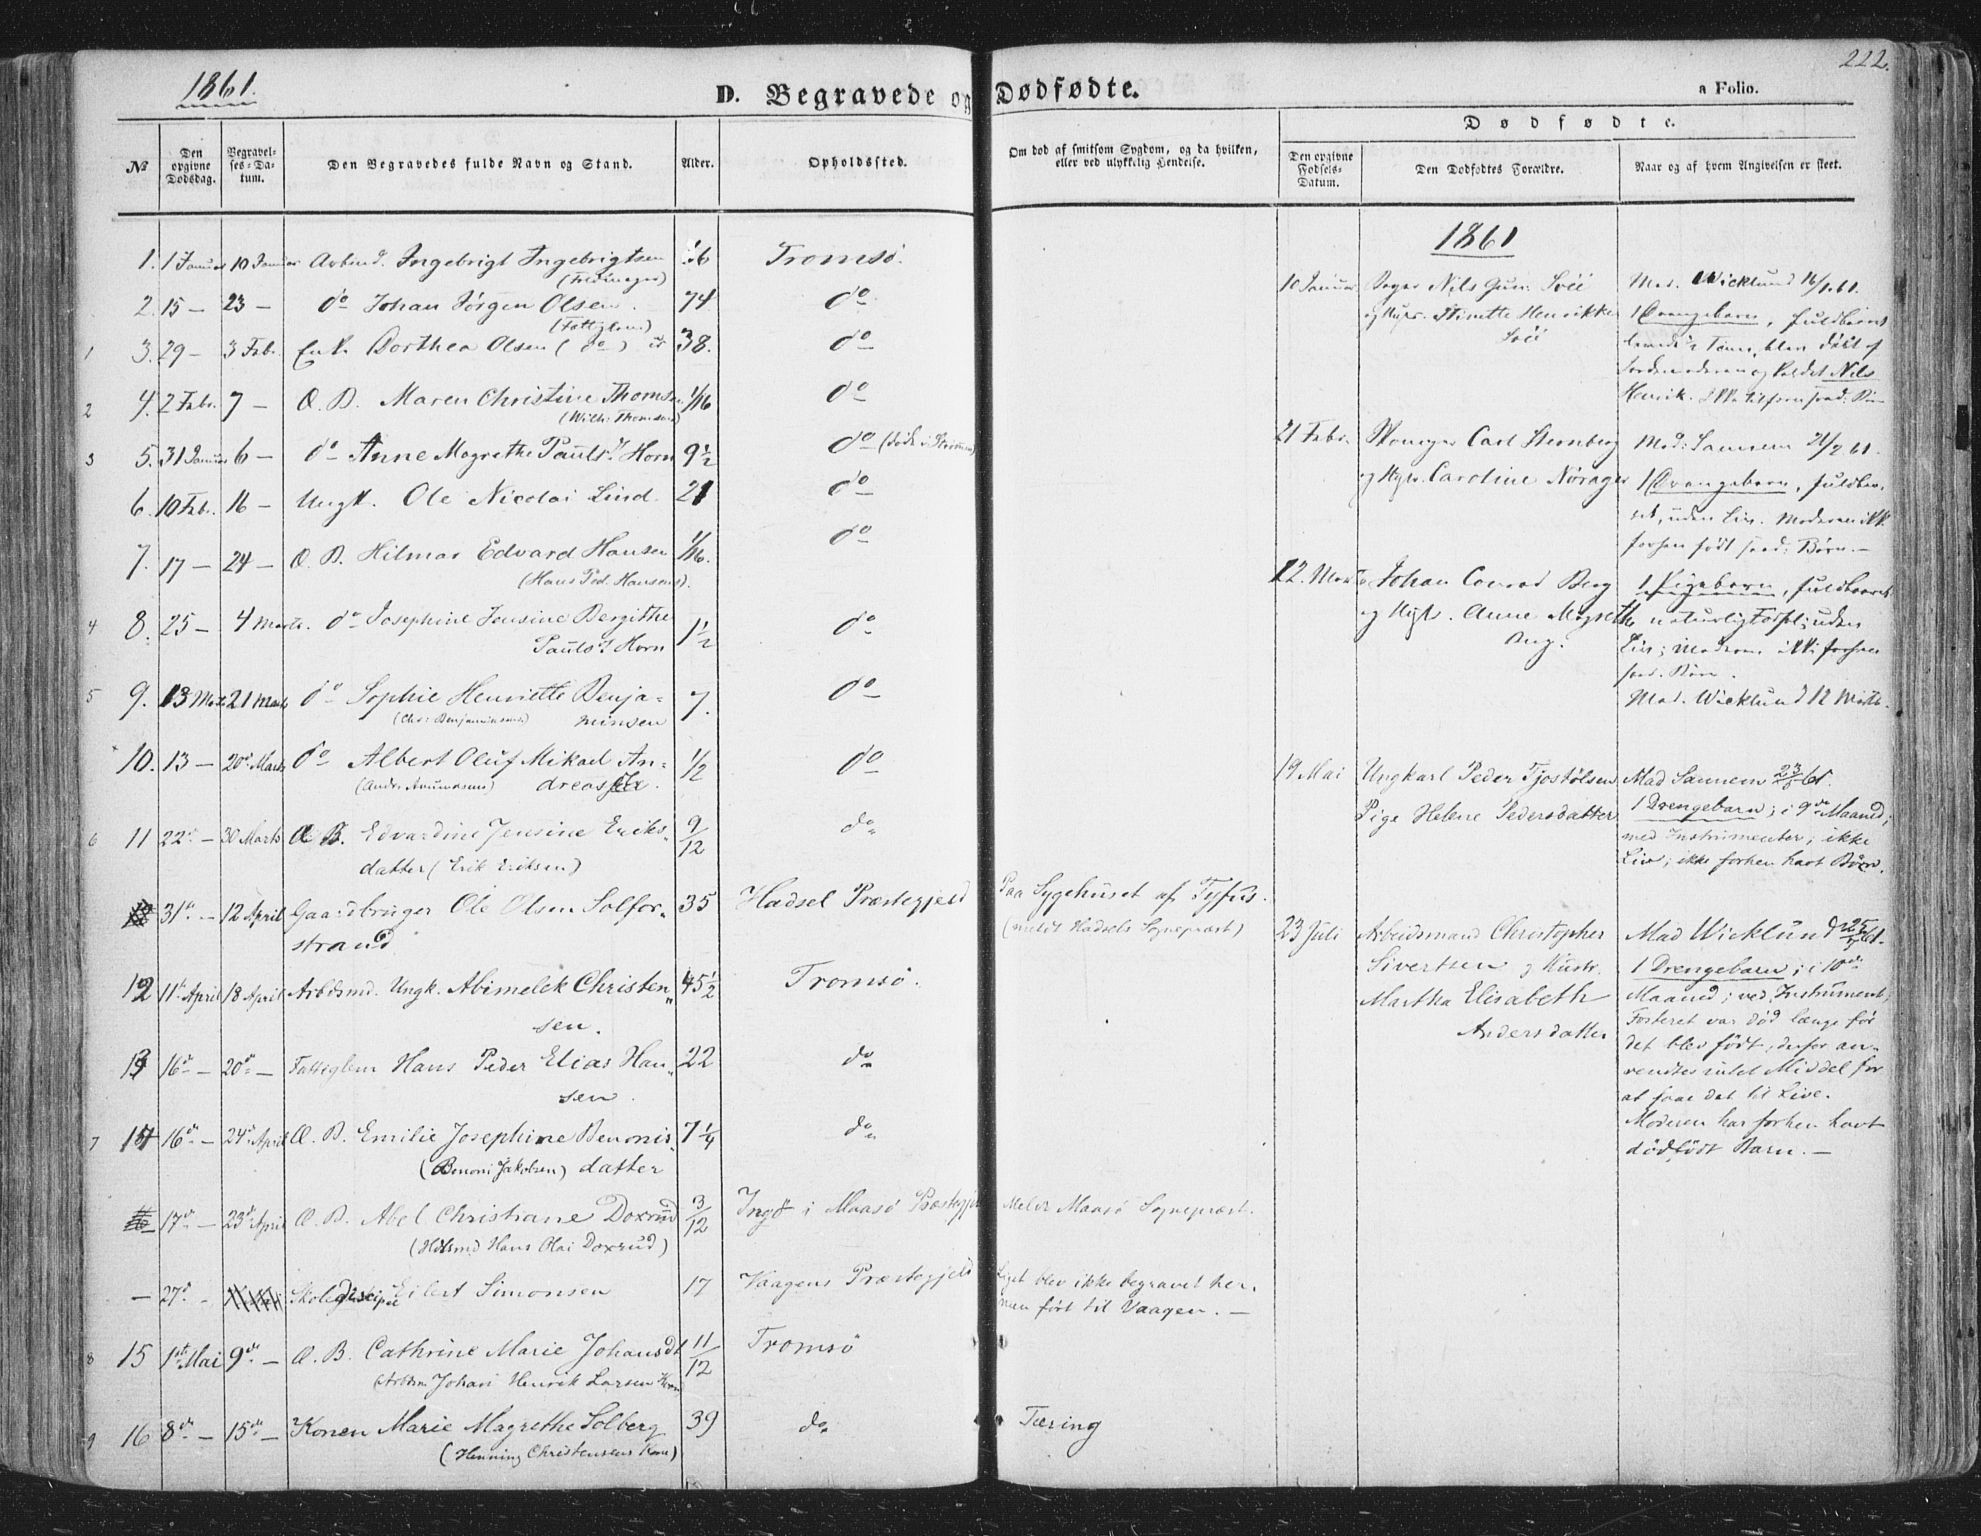 1861.
D. Begravede og Dødfødte.
222.
a Folio.
№
Den opgivne Dødsdag.
Begravelses-Datum.
Den Begravedes fulde Navn og Stand.
Alder.
Opholdssted.
Om død af smitsom Sygdom, og da hvilken, eller ved ulykkelig Hendelse.
Dødfødte.
Den opgivne Fødsels-Datum.
Den Dødfødtes Forældre.
Naar og af hvem Angivelsen er skeet.
1. 1 Januar 10 Januar Arbmd. Ingebrigt Ingebrigtsen Tromsø.
2. 15 — 23 — do Johan Jørgen Olsen. 74 do
(Fattiglem)
1 3. 29 — 3 Febr. Enk. Dorthea Olsen (do) 38. do
2 4. 2 Febr. 7 — Æ. B. Maren Christine Thomsen 1/16 do
(Wilh. Thomsen)
3 5. 31 Januar 6 — do Anne Magrethe Pauls. Horn 9½ do
6. 10 Febr. 16 — Ungk. Ole Nicolai Lind. 21 do
7. 17 — 24 — Æ. B. Hilmar Edvard Hansen 1/16. do
(Hans Ped. Hansens).
4 8. 25 — 4 Marts. do Josephine Jensine Bergithe 1½ do
Pauls. Horn
5 9. 13 Marts 21 Marts do Sophie Henriette Benja- 7. do
(Chr. Benjaminsens) minsen
10. 13 — 20de Marts do Albert Oluf Mikael An- 1/2 do
(Andr. Amundsens) dreassen
6 11 22de — 30 Marts Æ. B. Edvardine Jensine Eriks- 9/12 do
datter (Erik Eriksen)
31te — 12 April Gaardbruger Ole Olsen Solfor- 35 Hadsel Præstegjeld Paa Sygehuset af Tyfus.
strand (meldt Hadsels Sognepræst)
12 11te April 18 April Arbdsmd. Ungk. Abimelek Christen- 45½ Tromsø.
sen.
13 16de — 20de — Fattiglem Hans Peder Elias Han- 22 do
sen.
7 14 16de — 24de April Æ. B. Emilie Josephine Benonis- 7¼ do
(Benoni Jakobsen) datter
17de — 23de April Æ. B. Abel Christiane Doxrud 3/12 Ingø i Maasø Præstegjeld Meldt Maasø Sognepræst.
(Hdlsmd Hans Olai Doxrud)
— 27de — Skoledisipel Eilert Simonsen 17 Vaagens Præstegjeld Liget blev ikke begravet her.
men ført til Vaagen. —
8 15 1ste Mai 9de — Æ. B. Cathrine Marie Johansdt 11/12 Tromsø
(Arbdsm Johan Henrik Larsen)
9 16 8de — 15de — Konen Marie Magrethe Solberg 39 do Tæring
(Henning Christensens Kone)
1861
10 Januar Nils Gun. Mad. Wicklund 16/1 61.
og Hstr. Henrikke 1 Drengebarn, fuldbaaret
levede 2 Timer, blev døbt af
Jordemoderen og kaldet Nils
Henrik.
21 Febr. Carl Sternberg Mad. Sannem 21/2 61.
og Hstr. Caroline Nørager 1 Drengebarn, fuldbaa-
ret, uden Liv. Moderen ikke
forhen født saad: Børn. —
12. Marts Johan Conrad Berg 1 Pigebarn, fuldbaaret
og Hstr. Anne Magrethe naturlig Fødsel; uden
Berg. Liv; Moderen ikke forhen
saad. Børn.
Mad. Wicklund 12 Marts.
19 Mai Ungkarl Peder Tjostølsen Mad Sannem 23/5 61.
Pige Helene Pedersdatter 1 Drengebarn; i 9de Maaned;
med Instrumenter; ikke
Liv; ikke forhen havt Børn.
23 Juli Arbeidsmand Christopher Mad Wicklund 25/7 61.
Sivertsen og Hustr. 1 Drengebarn; i 10de
Martha Elisabeth Maaned; ved Instrument;
Andersdatter Fosteret var død længe før
det blev født, derfor an-
vendtes intet Middel for
at faae det til Live.
Moderen har forhen havt
dødfødt Barn. —